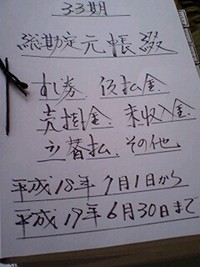 33期
総勘定元帳綴
札券 仮払金
売掛金 未収入金
立替払 その他
平成18年7月1日から
平成19年6月30日まで